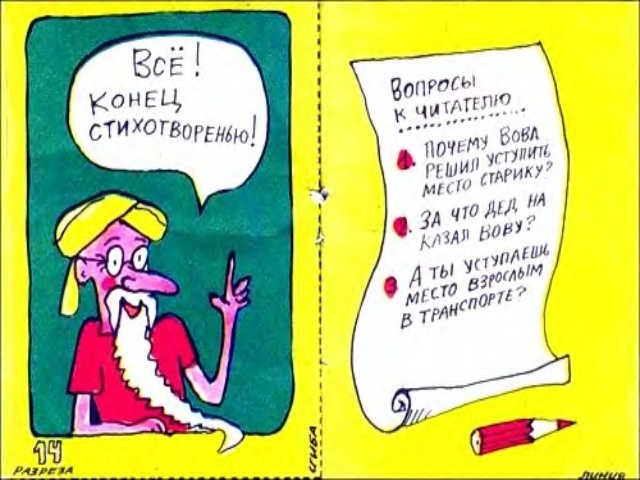 ВСЁ!
КОНЕЦ
СТИХОТВОРЕНЬЮ!
14
РАЗРЕЗА
СГИБА
ВОПРОСЫ
К ЧИТАТЕЛЮ
1. ПОЧЕМУ ВОВА
РЕШИЛ УСТУПИТЬ
МЕСТО СТАРИКУ?
2. ЗА ЧТО ДЕД НА-
КАЗАЛ ВОВУ?
3. А ТЫ УСТУПАЕШЬ
МЕСТО ВЗРОСЛЫМ
В ТРАНСПОРТЕ?
ЛИНИЯ